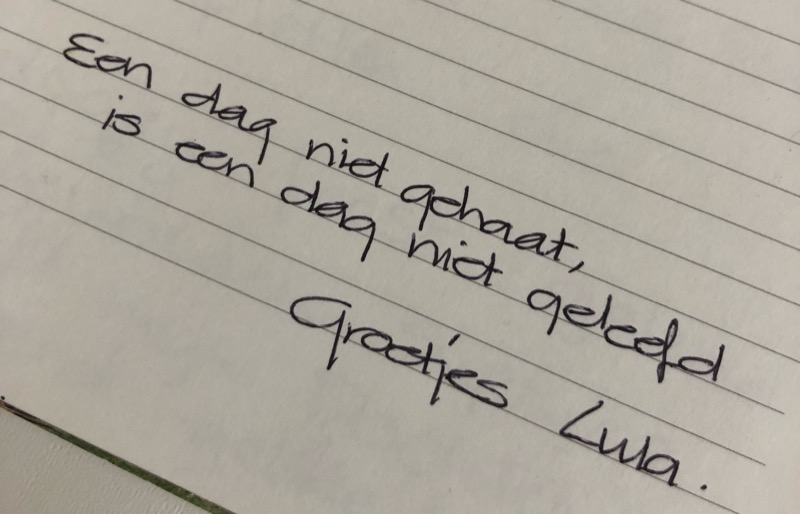 Een dag niet gehaat,
is een dag niet geleefd
Groetjes Lula.